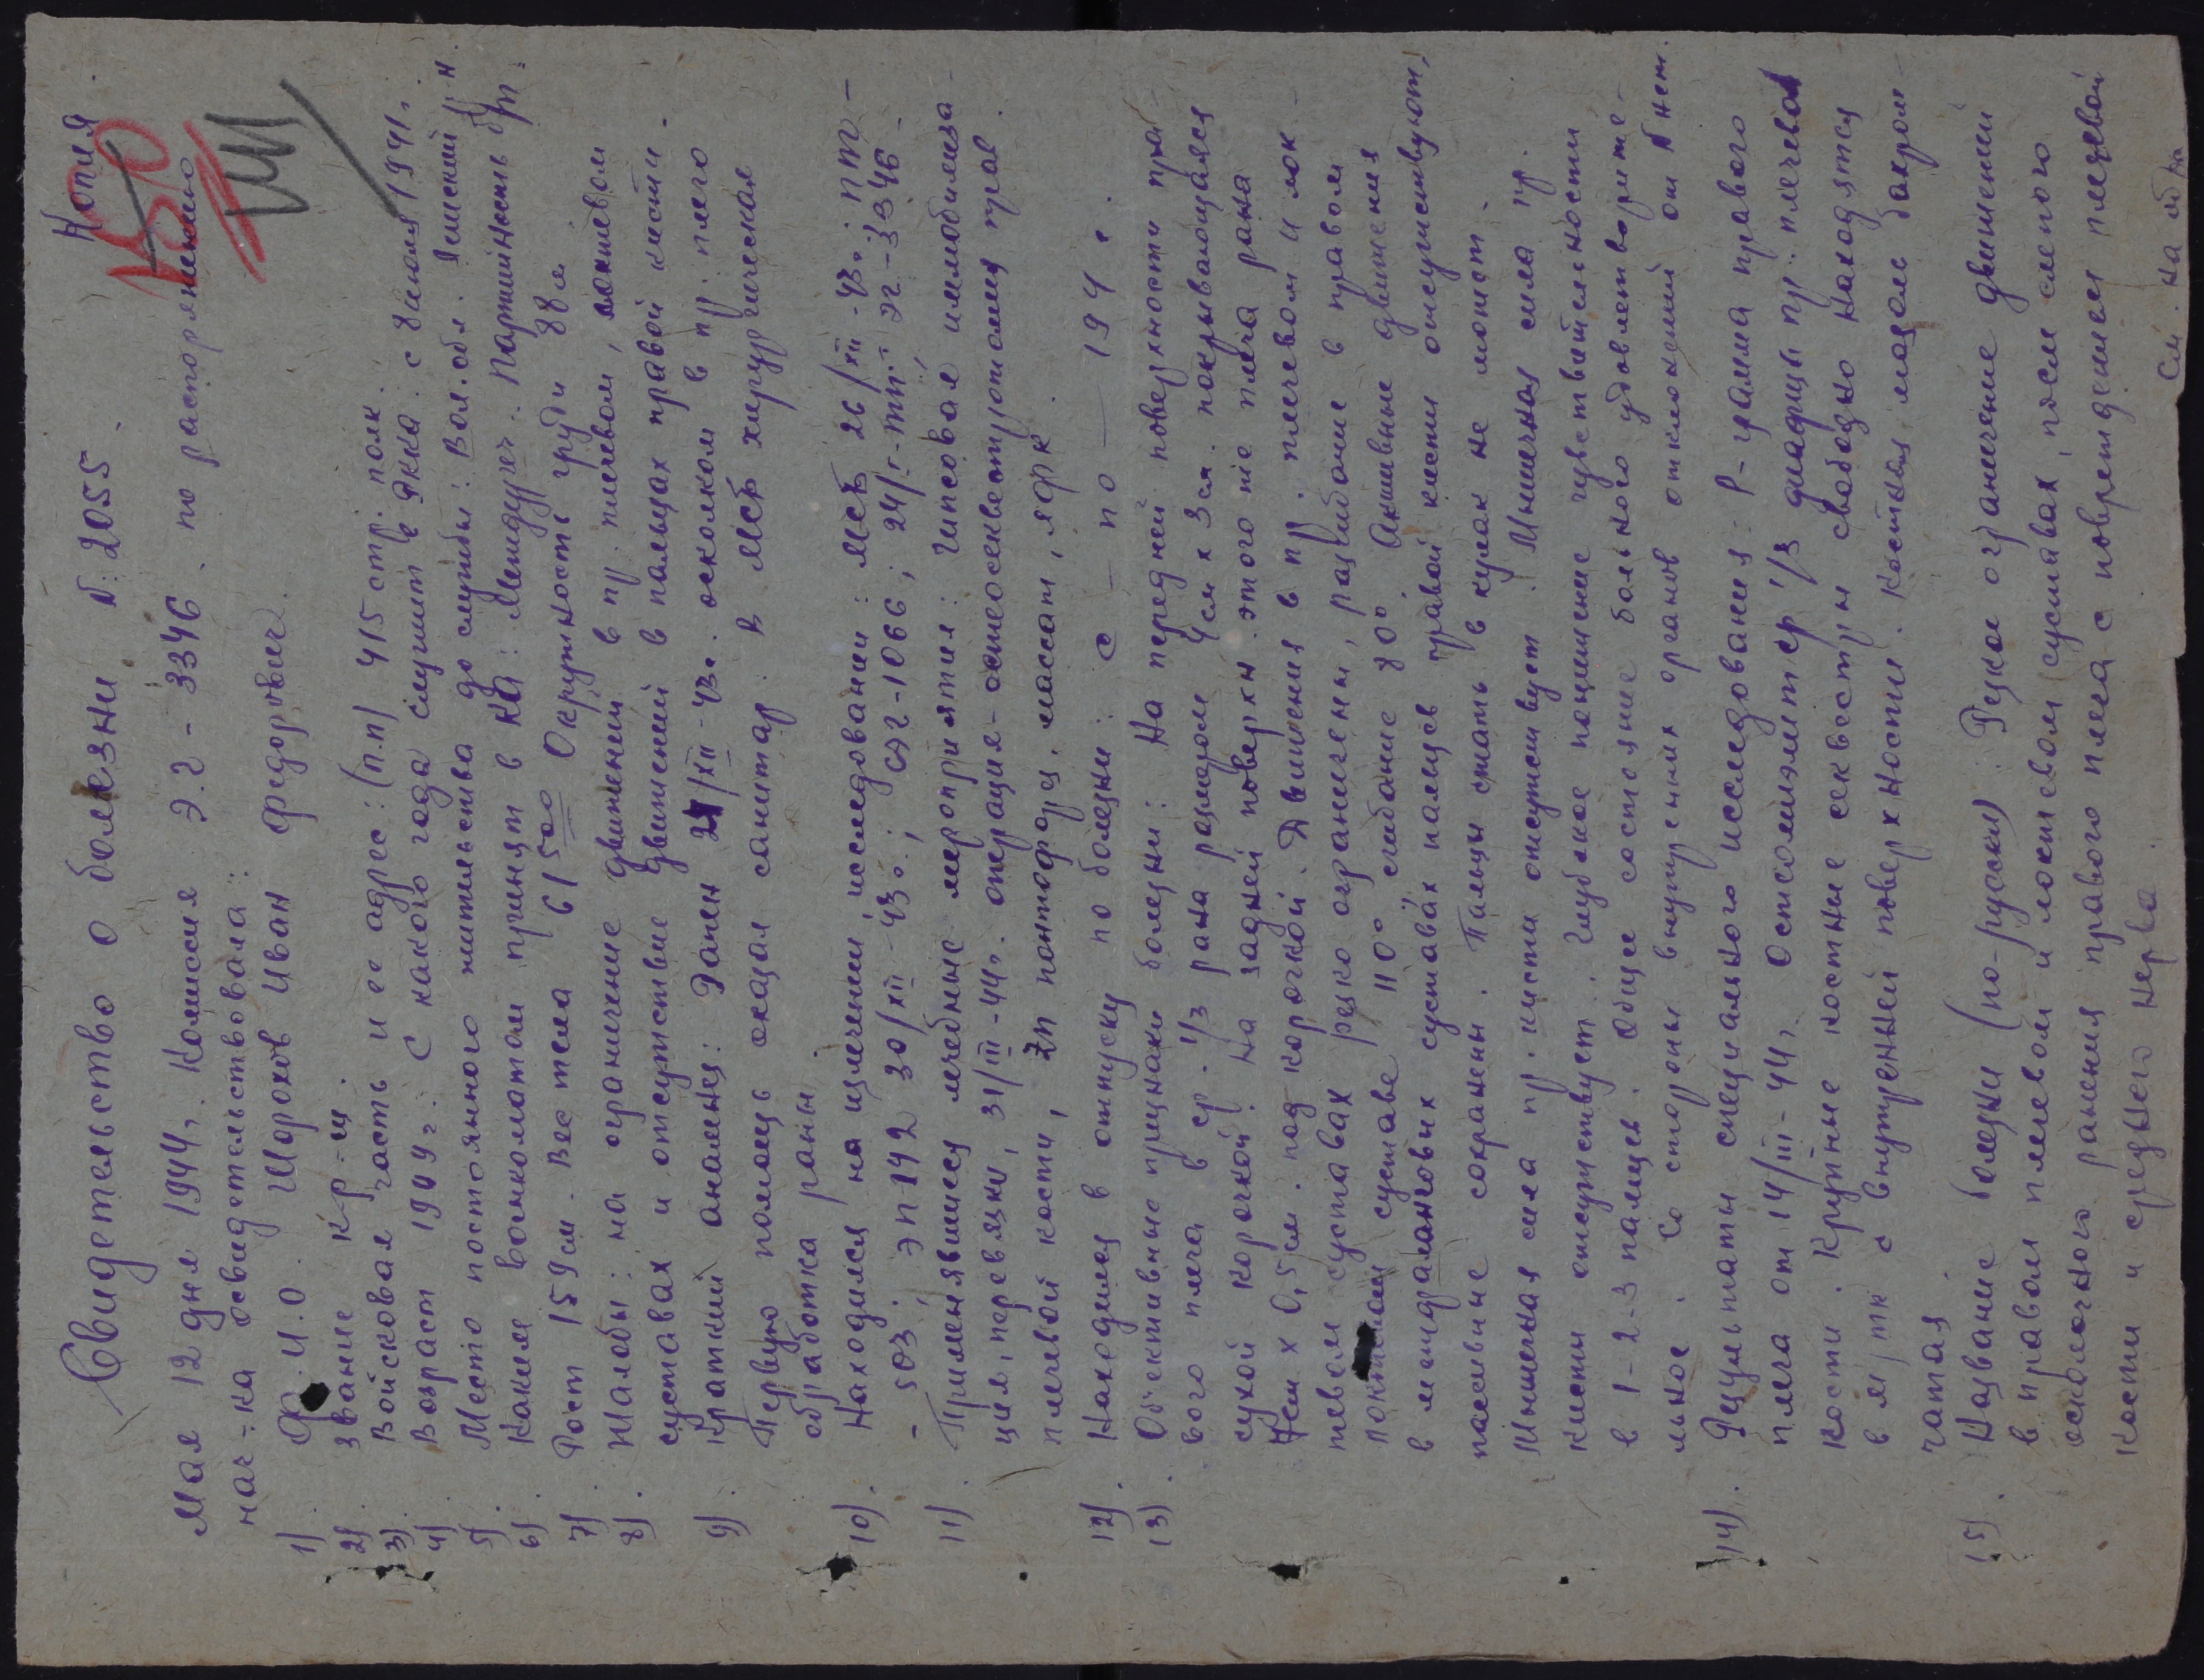 Копия.
150
Свидетельство о болезни N: 2055.
Мая 12 дня 1944 г. Комиссия Э.Г - 3346. по распоряжению
нач-ка освидетельствовала:
1). Ф. И. О. Шорохов Иван Федорович.
2). звание кр-ц.
3). Войсковая часть и ее адрес: (п.п) 415 стр. полк.
4) Возраст 1904 г. С какого года служит в РККА: с июля 1941 г.
5) Место постоянного жительства до службы: Вол. обл.
6). Каким военкоматом принят в КА: Междуреч. Партийность б/п.
7). Рост 159 см. Вес тела 61500 Окружность груди 88 см
8). Жалобы: на ограничение движений в пр. плечевом, локтевом
суставах и отсутствие движений в пальцах правой кисти.
9). Краткий анамнез: Ранен 21/XII-43 г. осколком в пр. плечо
Первую помощь оказал санитар. В МСБ хирургическая
обработка раны.
10). Находился на излечении, исследовании: МСБ 26/XII-43 г.; ППГ-
- 503; ЭП-142 30/XII-43 г.; СЭГ-1066; 24/I-44 г. ЭГ-3346.
11). Применявшиеся лечебные мероприятия: Гипсовая иммобилиза-
ция, перевязки, 31/III-44 г. операция-остеосеквестротомия прав.
плечевой кости, массаж, ЛФК.
12). Находился в отпуску по болезни: с — по — 194 г.
13). Объективные признаки болезни: На передней поверхности пра-
вого плеча в ср. 1/3 рана размером 4 см х 3 см. покрывающаяся
сухой корочкой. На задней поверхн. этого же плеча рана
х 0,5 см. под корочкой. Движения в пр. плечевом и лок-
тевом суставах резко ограничены, разгибание в правом
локтевом суставе 110° сгибание 80°. Активные движения
в межфаланговых суставах пальцев правой кисти отсутствуют,
пассивные сохранены. Пальцы сжать в кулак не может.
Мышечная сила пр. кисти отсутствует. Мышечная сила пр.
кисти отсутствует. Глубокое понижение чувствительности
в 1-2-3 пальцев. Общее состояние больного удовлетворите-
льное. Со стороны внутренних органов отклонений от N нет.
14). Результаты специального исследования: Р-грамма правого
плеча от 14/III-44 г. Остеомиэлит ср 1/3 диафиза пр. плечевой
кости. Крупные костные секвестры свободно находятся
в м/тк с внутренней поверхности. Костная мозоль бахром-
чатая.
15). Название болезни (по-русски): Резкое ограничение движений
в правом плечевом и локтевом суставах, после слепого
осколочного ранения правого плеча с повреждением плечевой
кости и среднего нерва.
см. на об